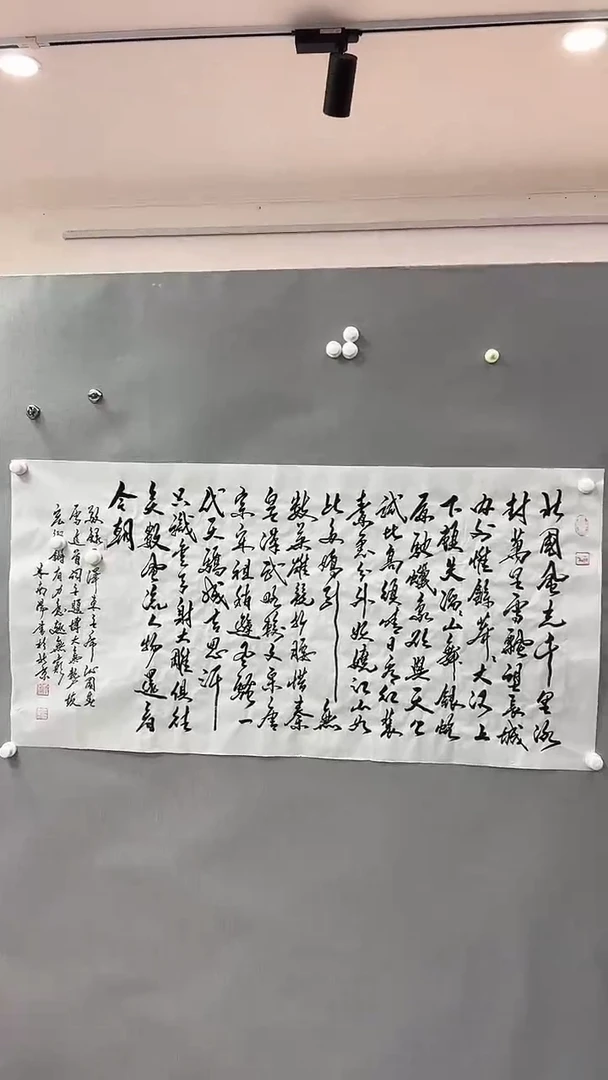 北國風光千里冰
封萬里雪飄望長城
内外惟餘莽莽大河上
下頓失滔滔山舞銀蛇
原馳蠟象欲與天公
試比高須晴日看紅裝
素裹分外妖嬈江山如
此多嬌引無
數英雄競折腰惜秦
皇漢武略輸文采唐
宗宋祖稍遜風騷一
代天驕成吉思汗
只識彎弓射大雕俱往
矣數風流人物還看
今朝
敬録毛澤東主席沁園春
這首詞主題博大氣勢
書於北京